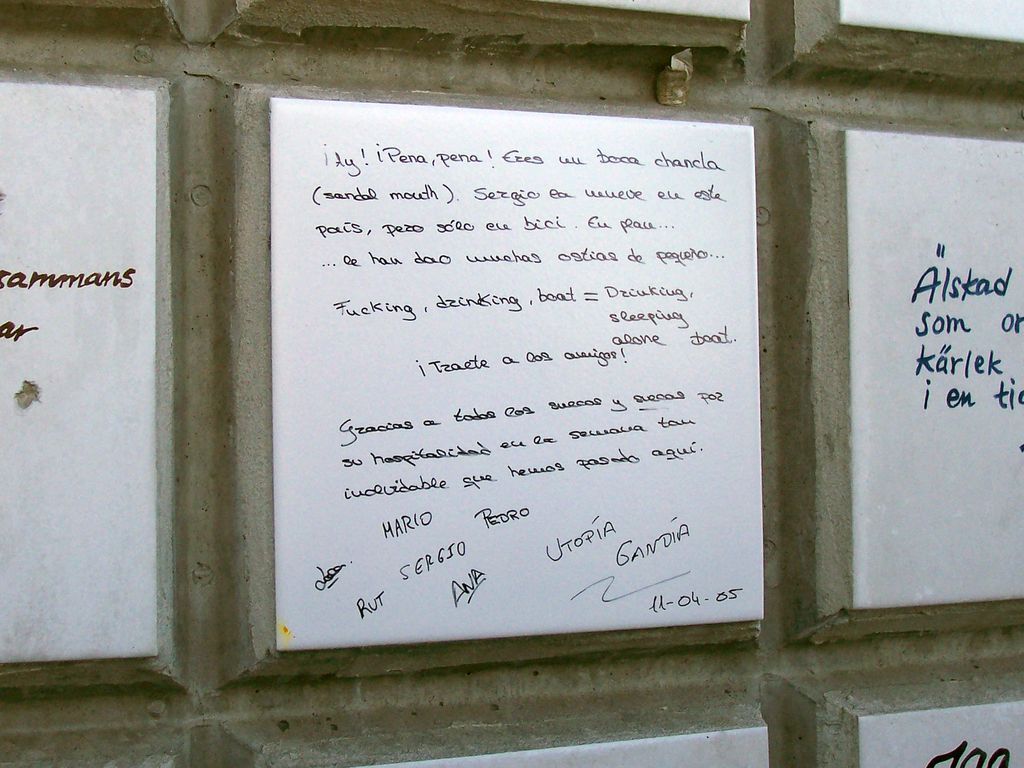 ¡Ay! ¡Pena, pena! Eres un boca chancla
(sandal mouth). Sergio la mueve en este
país, pero sólo en bici. En plan...
...le han dao muchas ostias de pequeño...
Fucking, drinking, boat = Drinking,
sleeping
alone boat.
¡Traete a los amigos!
Gracias a todos los suecos y suecas por
su hospitalidad en la semana tan
inolvidable que hemos pasado aquí.
MARIO PEDRO
SERGIO UTOPÍA
GANDÍA
RUT ANA
11-04-05
sammans
ar
Älskad
som
kärlek
i en